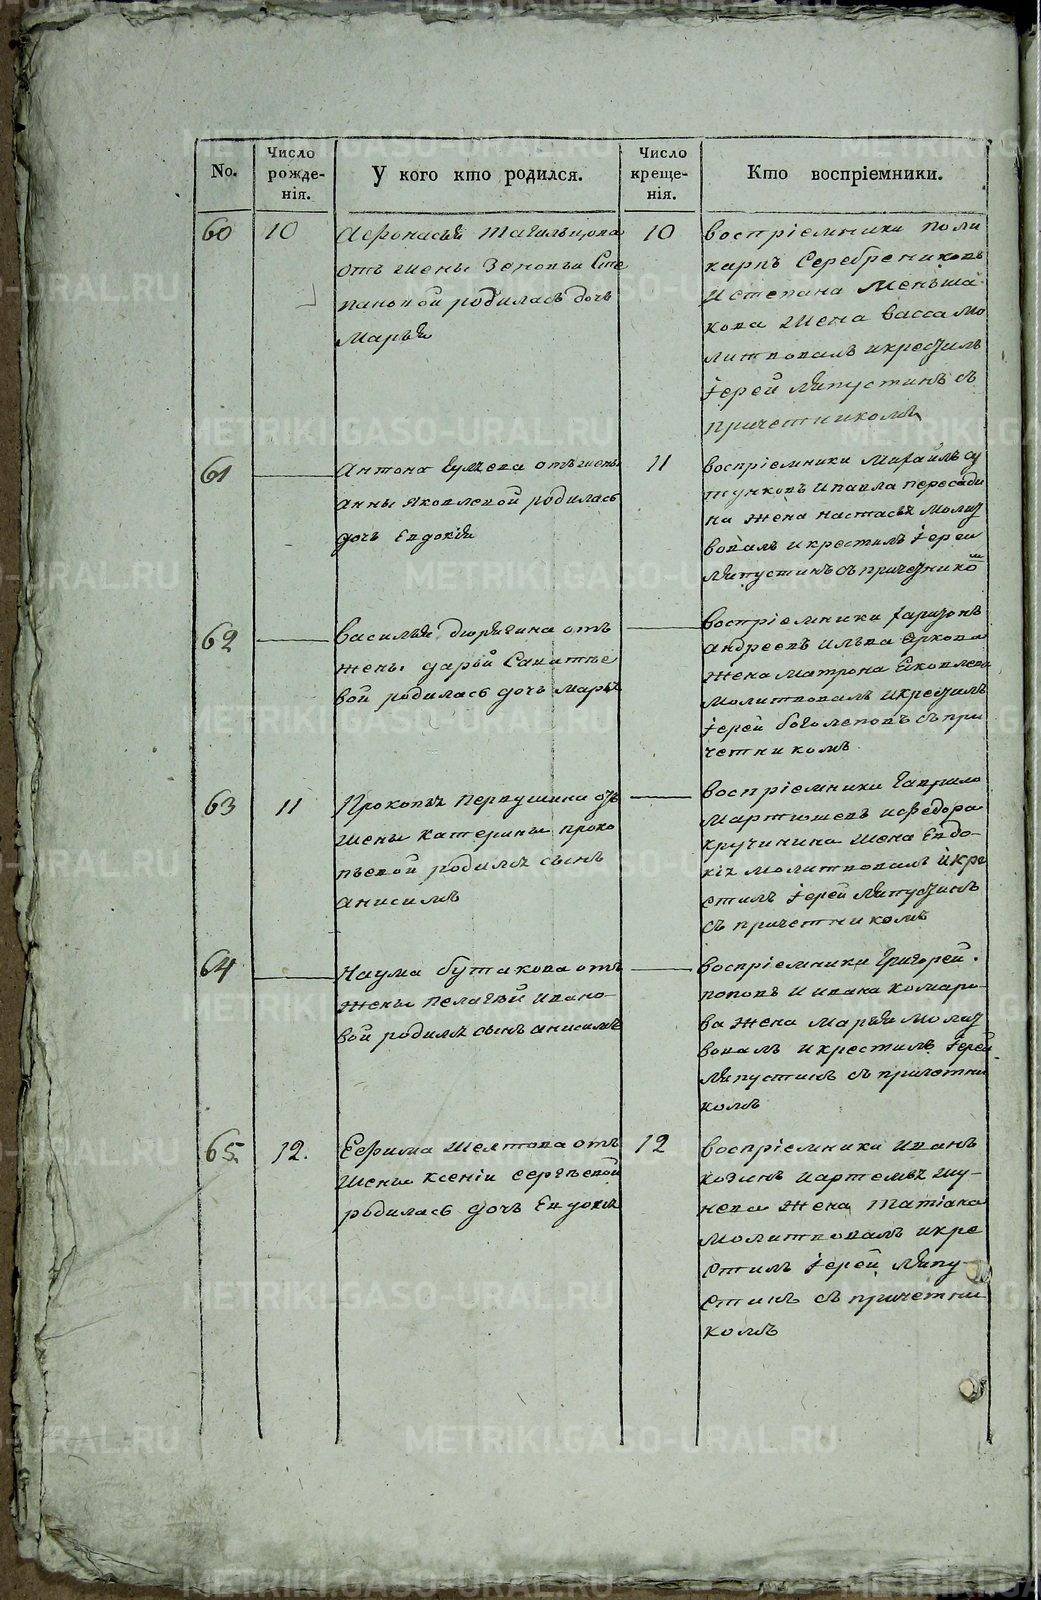 No.
Число рожде-нія.
У кого кто родился.
Число креще-нія.
Кто воспріемники.
60
10
Афонасья тагильцова
отъ жены Зеновьи Сте
пановой родилась дочь
Марья
10
воспріемники поли
карпъ Серебрениковъ
и степана Меньша
кова жена васса мо
литвовалъ и крестилъ
іерей ляпустинъ съ
причетникомъ
61
антона
отъ жены
анны яковлевой родилась
дочь Евдокія
11
воспріемники Михаилъ су
тунковъ и павла пересади
на жена настасья молит
вовалъ и крестилъ іерей
ляпустинъ съ причетникомъ
62
василья дюрягина отъ
жены дарьи Саватье
вой родилась дочь марья
воспріемники
андреевъ и льва
жена матрона Яковлева
молитвовалъ и крестилъ
іерей боголеповъ съ при
четникомъ
63
11
Прокопья Первушина отъ
жены катерины проко
пьевой родился сынъ
анисимъ
воспріемники Гаврило
Мартюшевъ и федора
кручинина жена Евдо-
кія молитвовалъ и кре
стилъ іерей ляпустинъ
съ причетникомъ
64
Наума бутакова отъ
жены пелагеи ивано-
вой родился сынъ анисимъ
воспріемники Григорей
поповъ и ивана комаро-
ва жена марья молит
вовалъ и крестилъ іерей
ляпустинъ съ причетни
комъ
65.
12.
Ефима желтова отъ
жены ксеніи сергѣевой
родилась дочь Евдокія
12
воспріемники иванъ
козинъ и артемья шу-
нева жена татіана
молитвовалъ и кре
стилъ іерей ляпу-
стинъ съ причетни
комъ
METRIKI.GASO-URAL.RU